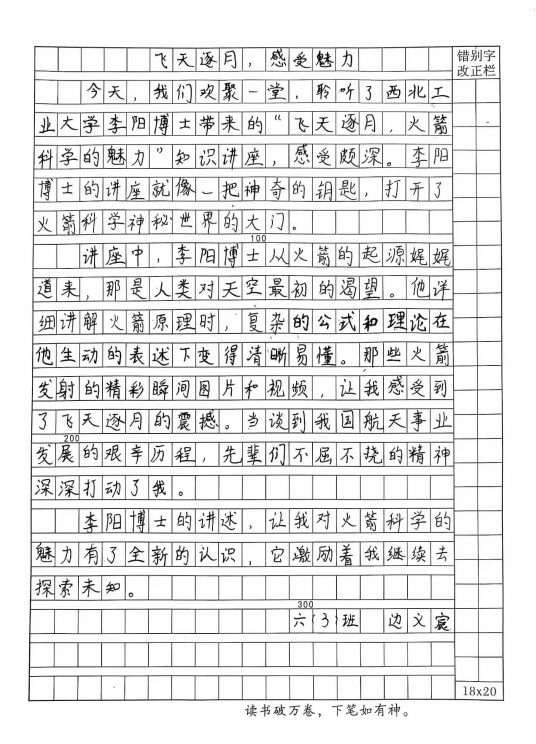 飞天逐月，感受魅力
错别字
改正栏
今天，我们欢聚一堂，聆听了西北工
业大学李阳博士带来的“飞天逐月，火箭
科学的魅力”知识讲座，感受颇深。李阳
博士的讲座就像一把神奇的钥匙，打开了
火箭科学神秘世界的大门。
100
讲座中，李阳博士从火箭的起源娓娓
道来，那是人类对天空最初的渴望。他详
细讲解火箭原理时，复杂的公式和理论在
他生动的表述下变得清晰易懂。那些火箭
发射的精彩瞬间图片和视频，让我感受到
了飞天逐月的震撼。当谈到我国航天事业
200
发展的艰辛历程，先辈们不屈不挠的精神
深深打动了我。
李阳博士的讲述，让我对火箭科学的
魅力有了全新的认识，它激励着我继续去
探索未知。
300
六（3）班 边义宸
18x20
读书破万卷，下笔如有神。